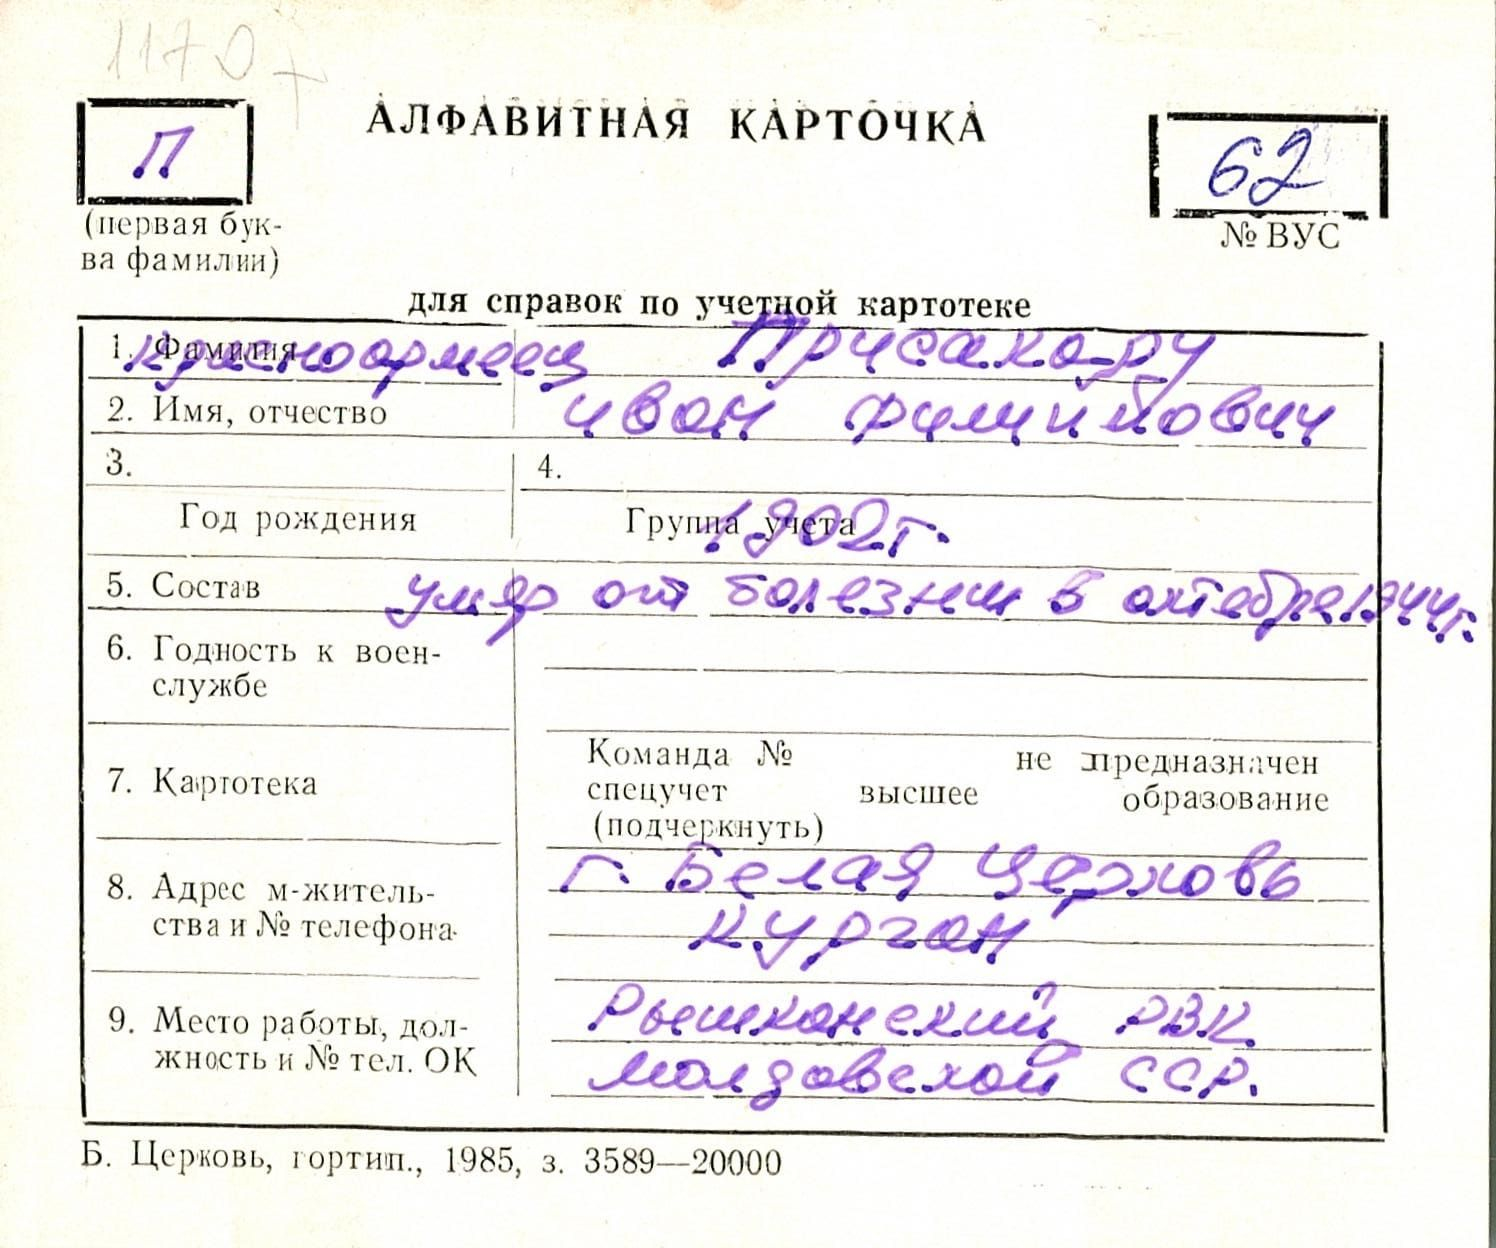 1170
АЛФАВИТНАЯ КАРТОЧКА
П
62
(первая бук-
ва фамилии)
№ ВУС
для справок по учетной картотеке
1. Фамилия
красноармеец Присакару
2. Имя, отчество Иван Филиппович
3. 4.
Год рождения Группа учета
1902 г.
5. Состав умер от болезни в октябре 1944 г.
6. Годность к воен-
службе
7. Картотека
Команда № не предназначен
спецучет высшее образование
(подчеркнуть)
8. Адрес м-житель-
ства и № телефона
г. Белая Церковь
Курган
9. Место работы, дол-
жность и № тел. ОК
Рышканский РВК
Молдавской ССР.
Б. Церковь, гортип., 1985, з. 3589—20000